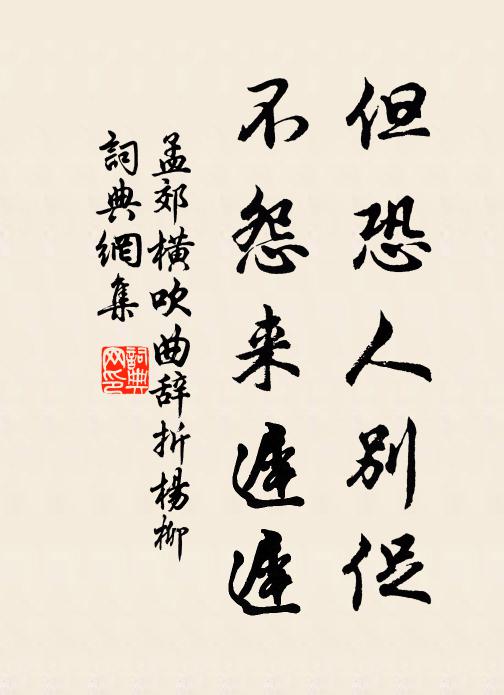 但恐人別促
不怨来遲遲
孟郊横吹曲辞折楊柳
詞典網集
詞典网印